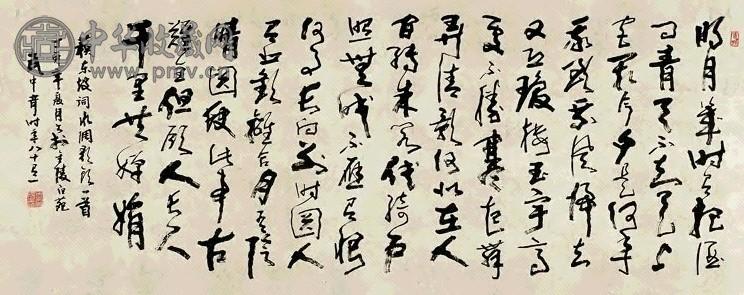 明月幾时有把酒
问青天不知天上
宫阙今夕是何年
我欲乘风归去
又恐瓊楼玉宇高
处不勝寒起舞
弄清影何似在人
间转朱阁低绮户
照無眠不应有恨
何事长向别时圆人
有悲歡離合月有陰
晴圆缺此事古
難全但願人长久
千里共嬋娟
録东坡词水调歌头一首
午夏月于
时年八十又一
中华收藏网
www.pmv.cn